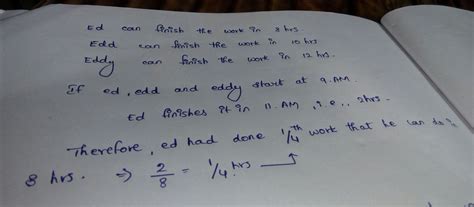 Ed can finish the work in 8 hrs.
Edd can finish the work in 10 hrs
Eddy can finish the work in 12 hrs.
If ed, edd and eddy start at 9.AM.
Ed finishes it in 11.AM, i.e., 2hrs.
Therefore, ed had done 1/4th work that he can do in
8 hrs. ⇒ 2/8 = 1/4 hrs